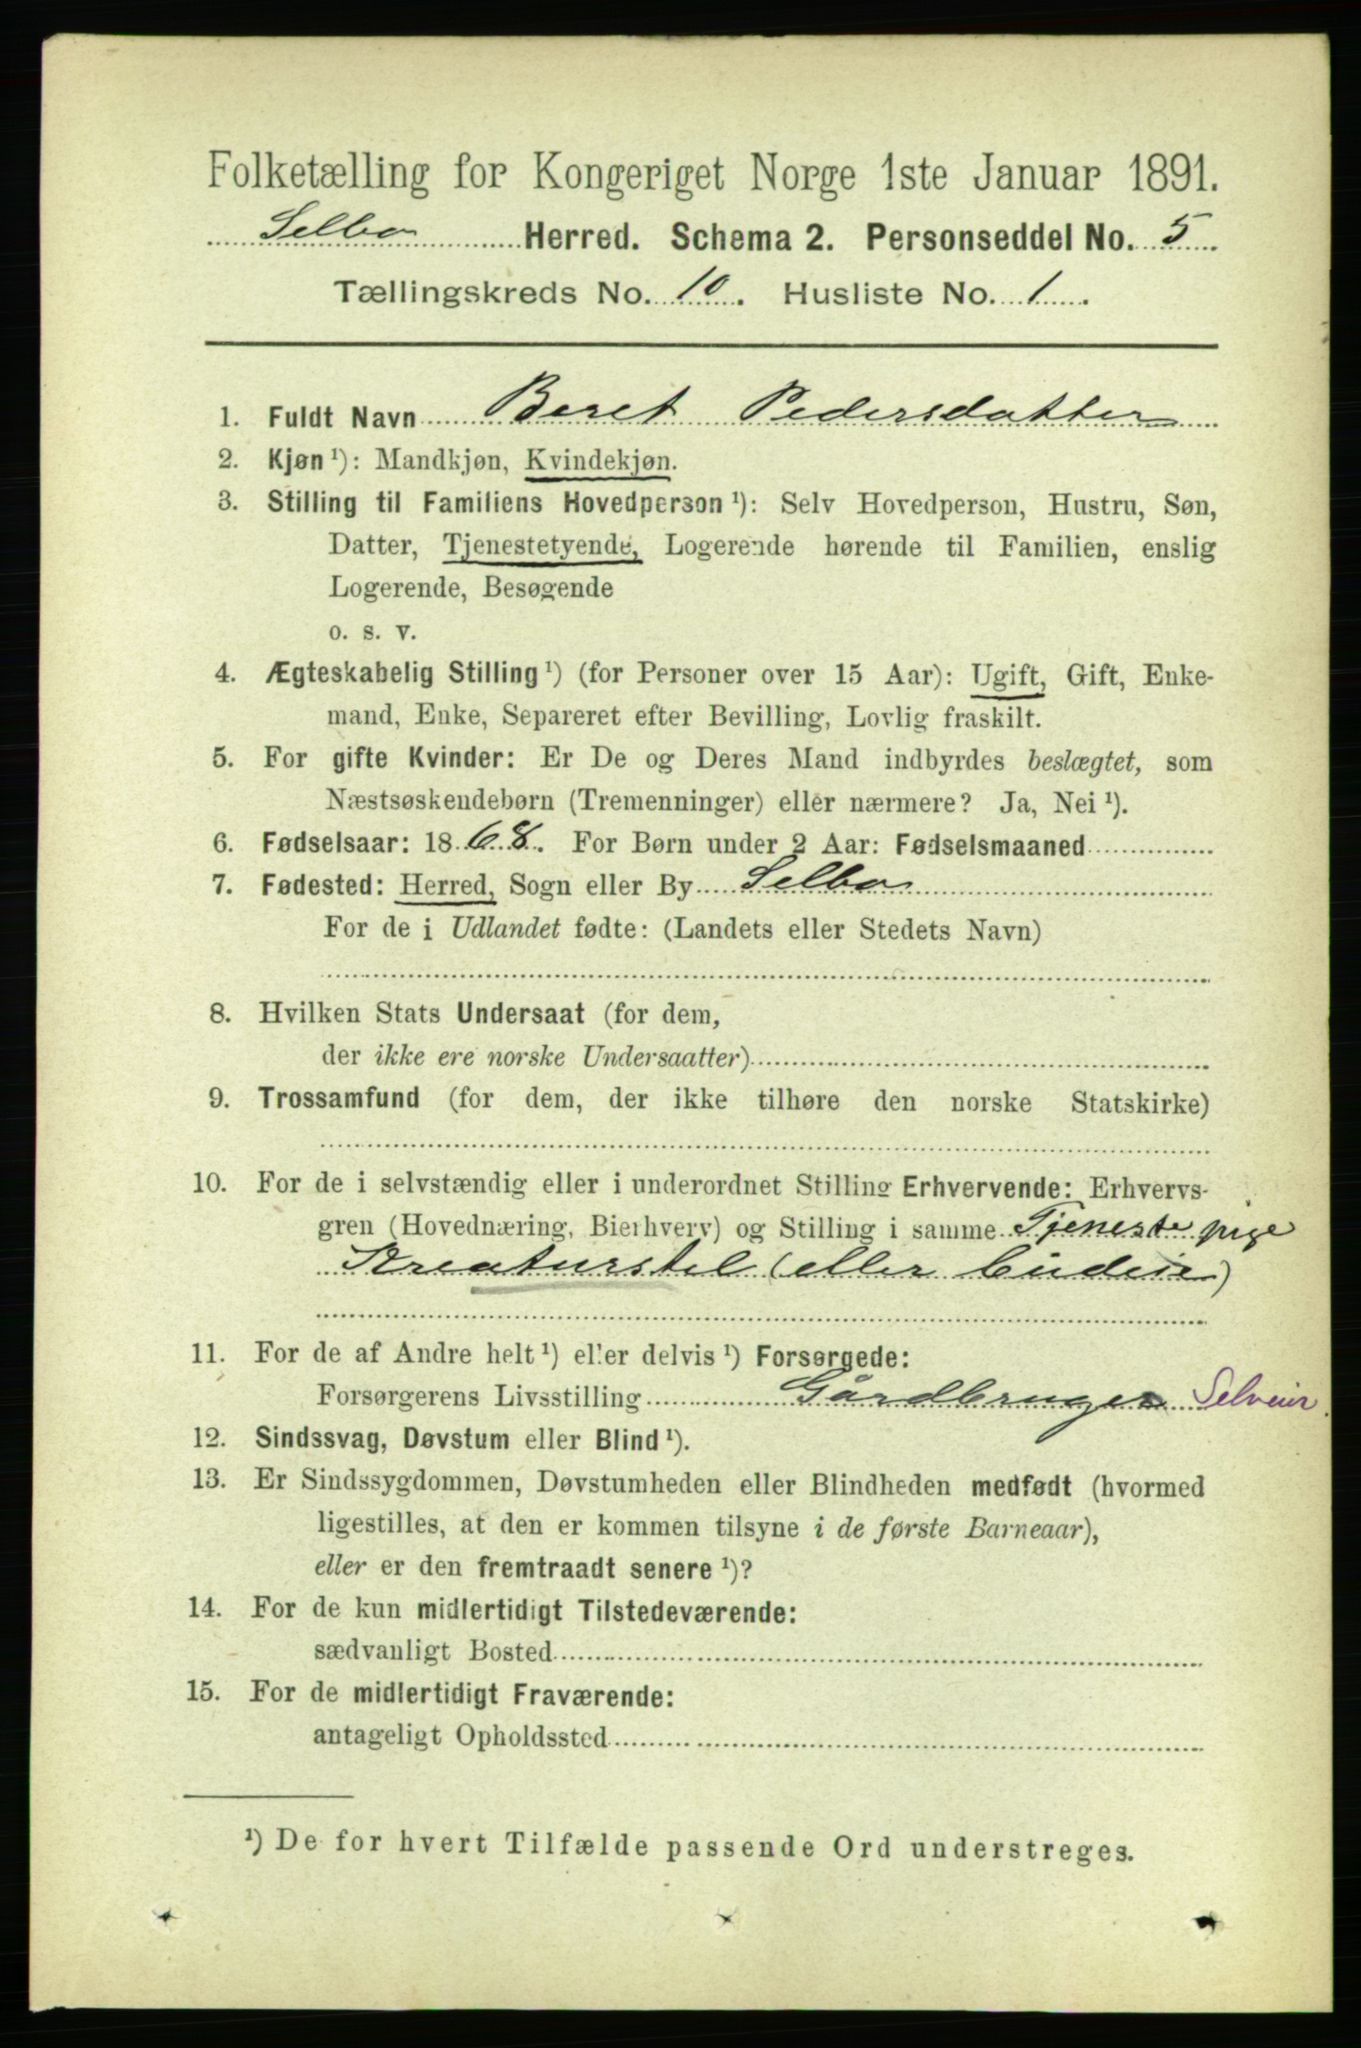 Folketælling for Kongeriget Norge 1ste Januar 1891.
Selbo Herred. Schema 2. Personseddel No. 5
Tællingskreds No. 10. Husliste No. 1.
1. Fuldt Navn Beret Pedersdatter
2. Kjøn ¹): Mandkjøn, Kvindekjøn.
3. Stilling til Familiens Hovedperson ¹): Selv Hovedperson, Hustru, Søn,
Datter, Tjenestetyende, Logerende hørende til Familien, enslig
Logerende, Besøgende
o. s. v.
4. Ægteskabelig Stilling ¹) (for Personer over 15 Aar): Ugift, Gift, Enke-
mand, Enke, Separeret efter Bevilling, Lovlig fraskilt.
5. For gifte Kvinder: Er De og Deres Mand indbyrdes beslægtet, som
Næstsøskendebørn (Tremenninger) eller nærmere? Ja, Nei ¹).
6. Fødselsaar: 1868. For Børn under 2 Aar: Fødselsmaaned
7. Fødested: Herred, Sogn eller By Selbo
For de i Udlandet fødte: (Landets eller Stedets Navn)
8. Hvilken Stats Undersaat (for dem,
der ikke ere norske Undersaatter)
9. Trossamfund (for dem, der ikke tilhøre den norske Statskirke)
10. For de i selvstændig eller i underordnet Stilling Erhvervende: Erhvervs-
gren (Hovednæring, Bierhverv) og Stilling i samme Tjeneste pige
Kreaturstel (eller budeie)
11. For de af Andre helt ¹) eller delvis ¹) Forsørgede:
Forsørgerens Livsstilling Gårdbruger Selveier
12. Sindssvag, Døvstum eller Blind ¹).
13. Er Sindssygdommen, Døvstumheden eller Blindheden medfødt (hvormed
ligestilles, at den er kommen tilsyne i de første Barneaar),
eller er den fremtraadt senere ¹)?
14. For de kun midlertidigt Tilstedeværende:
sædvanligt Bosted
15. For de midlertidigt Fraværende:
antageligt Opholdssted
¹) De for hvert Tilfælde passende Ord understreges.